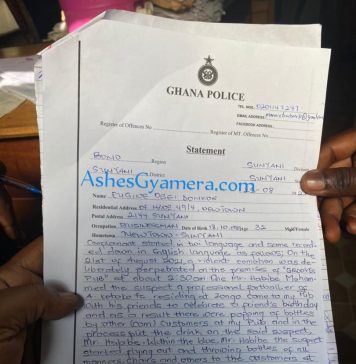 GHANA POLICE
TEL. NOS: 0201147247
EMAIL ADDRESS
FACEBOOK ADDRESS
Register of Offences No
Register of MT. Offences No.
Statement
BONO Region SUNYANI
SUNYANI District SUNYANI
08
AshesGyamera.com
Name EUGINE OSEI BONKOR
Residential Address NEWTOWN
Postal Address 2199 SUNYANI
Occupation BUSINESSMAN Date of Birth 18.10 32 Male/Female
Hometown NEWTOWN - SUNYANI
Complainant stated in twi language and same record-
ed down in English language as follows; On the
21st of August 2021, a violent condition was de-
liberately perpetrated on the premises of
PUB" at about 2:30am. One Mr. Habibe Moham-
med the suspect a professional footballer of
resident residing at Zongo came to my Pub
with his friends to celebrate a friend's birthday
and as a result there were popping of bottles
by other (com) customers at my Pub and in the
process spilt the drink on the said suspect,
Mr. Habibe. Within the blue, Mr. Habibe the suspect
started flying out and through bottles of all
manners, chairs and others to the customers at